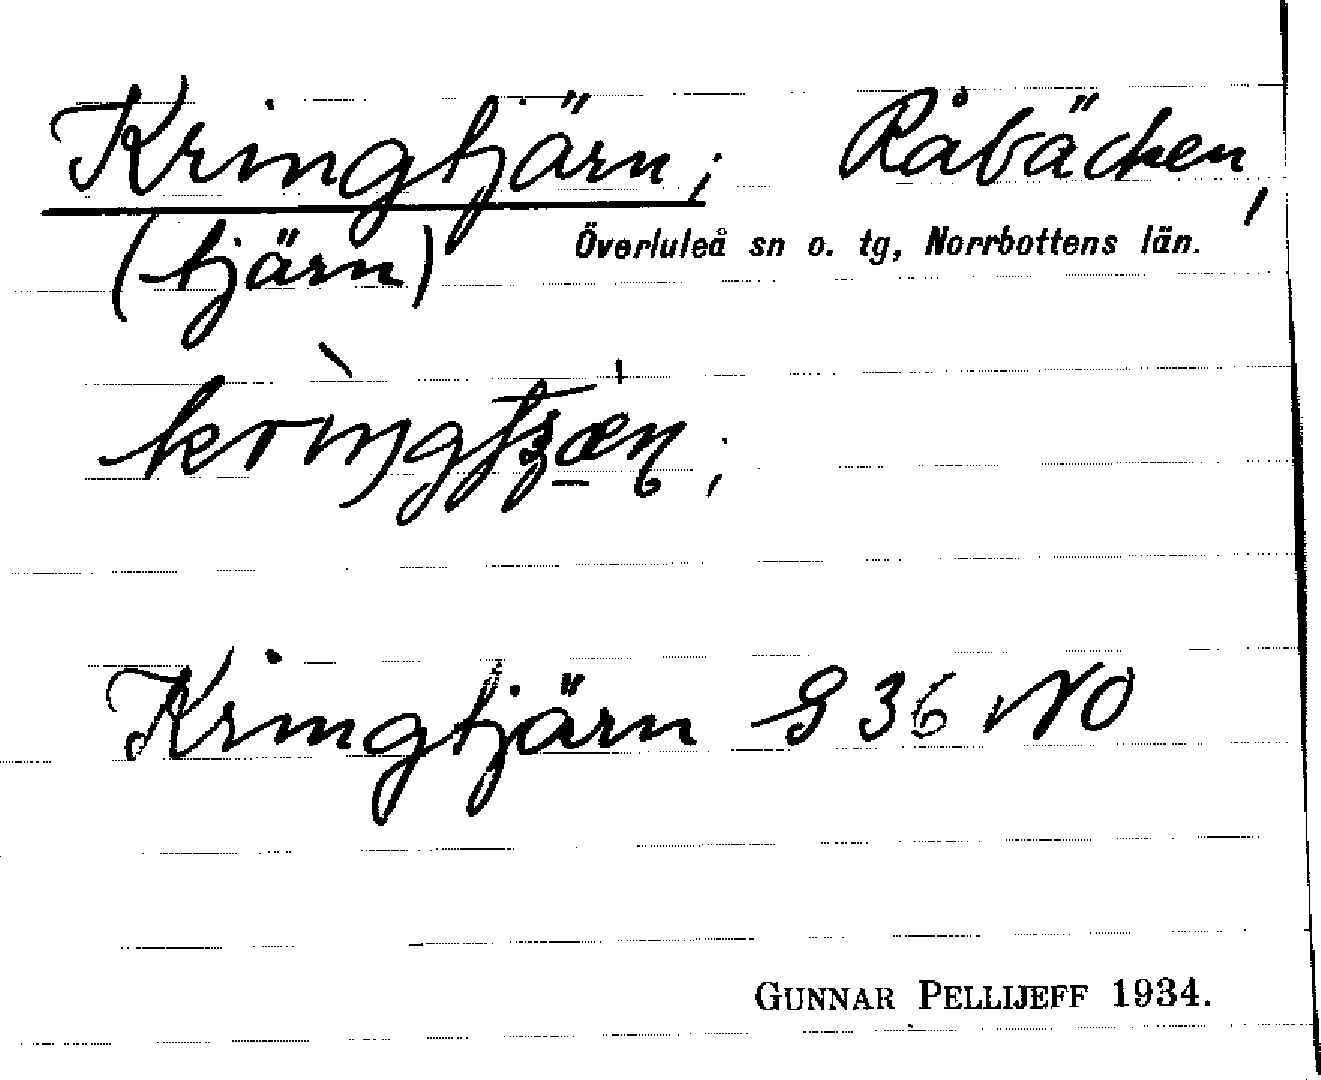 Kringtjärn; Råbäcken,
(tjärn) Överluleå sn o. tg, Norrbottens län.
Kringtjärn G 36 NO
GUNNAR PELLIJEFF 1934.